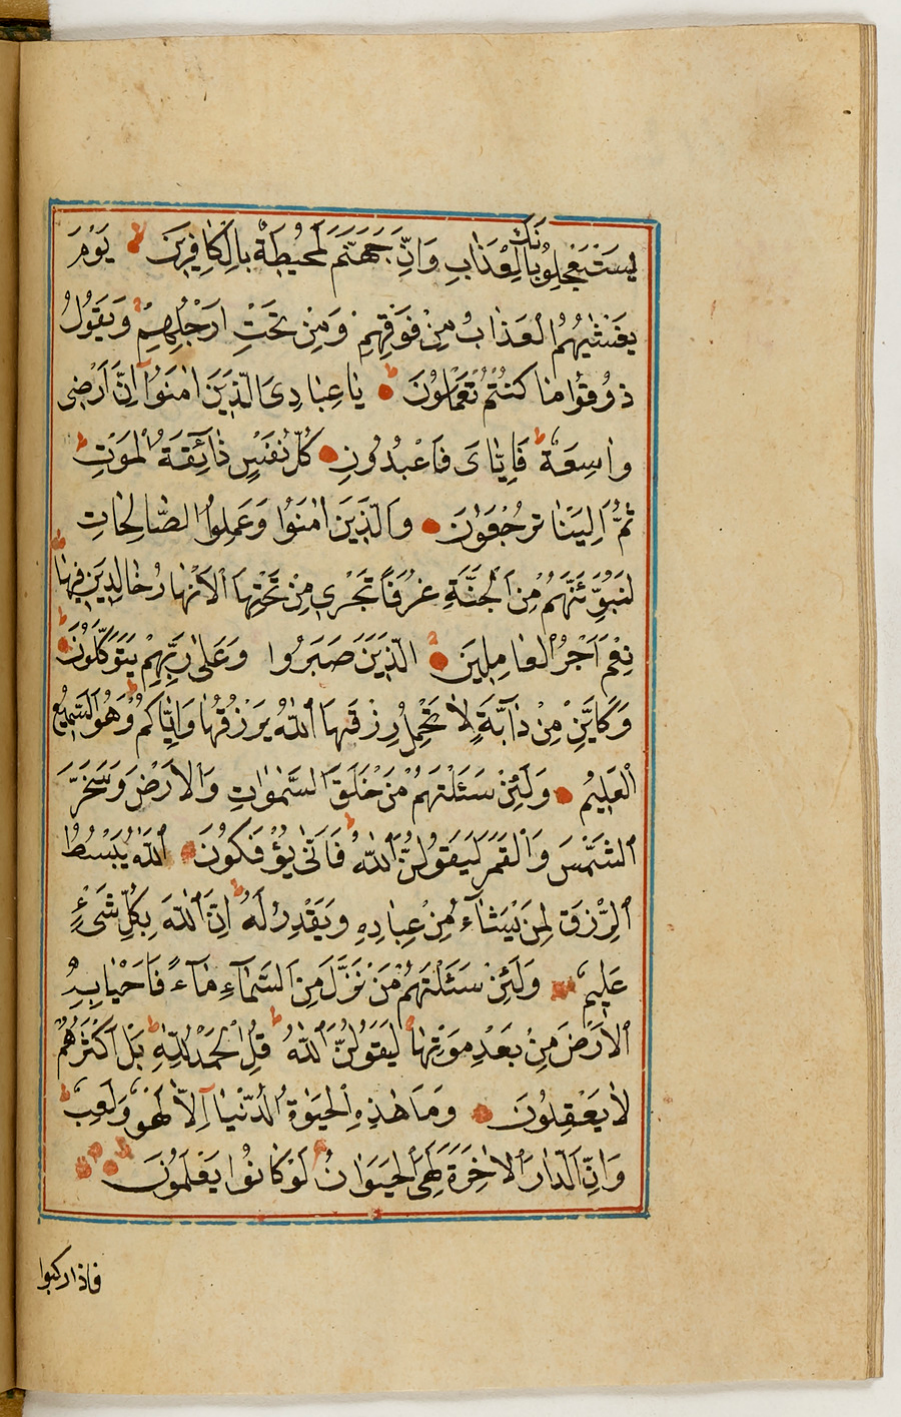 يَسْتَعْجِلُونَكَ بِالْعَذَابِ وَاِنَّ جَهَنَّمَ لَمُحِيطَةٌ بِالْكَافِرِينَ يَوْمَ
يَغْشٰيهُمُ الْعَذَابُ مِنْ فَوْقِهِمْ وَمِنْ تَحْتِ اَرْجُلِهِمْ وَيَقُولُ
ذُوقُوا مَا كُنْتُمْ تَعْمَلُونَ يَا عِبَادِىَ الَّذِينَ اٰمَنُوٓا اِنَّ اَرْضِى
وَاسِعَةٌ فَاِيَّاىَ فَاعْبُدُونِ كُلُّ نَفْسٍ ذَآئِقَةُ الْمَوْتِ
ثُمَّ اِلَيْنَا تُرْجَعُونَ وَالَّذِينَ اٰمَنُوا وَعَمِلُوا الصَّالِحَاتِ
لَنُبَوِّئَنَّهُمْ مِنَ الْجَنَّةِ غُرَفًا تَجْرِى مِنْ تَحْتِهَا الْاَنْهَارُ خَالِدِينَ فِيهَا
نِعْمَ اَجْرُ الْعَامِلِينَ الَّذِينَ صَبَرُوا وَعَلٰى رَبِّهِمْ يَتَوَكَّلُونَ
وَكَاَيِّنْ مِنْ دَآبَّةٍ لَا تَحْمِلُ رِزْقَهَا اَللّٰهُ يَرْزُقُهَا وَاِيَّاكُمْ وَهُوَ السَّمِيعُ
الْعَلِيمُ وَلَئِنْ سَئَلْتَهُمْ مَنْ خَلَقَ السَّمٰوَاتِ وَالْاَرْضَ وَسَخَّرَ
الشَّمْسَ وَالْقَمَرَ لَيَقُولُنَّ اللّٰهُ فَاَنّٰى يُؤْفَكُونَ اَللّٰهُ يَبْسُطُ
الرِّزْقَ لِمَنْ يَشَآءُ مِنْ عِبَادِهِ وَيَقْدِرُ لَهُ اِنَّ اللّٰهَ بِكُلِّ شَىْءٍ
عَلِيمٌ وَلَئِنْ سَئَلْتَهُمْ مَنْ نَزَّلَ مِنَ السَّمَآءِ مَآءً فَاَحْيَا بِهِ
الْاَرْضَ مِنْ بَعْدِ مَوْتِهَا لَيَقُولُنَّ اللّٰهُ قُلِ الْحَمْدُ لِلّٰهِ بَلْ اَكْثَرُهُمْ
لَا يَعْقِلُونَ وَمَا هٰذِهِ الْحَيٰوةُ الدُّنْيَآ اِلَّا لَهْوٌ وَلَعِبٌ
وَاِنَّ الدَّارَ الْاٰخِرَةَ لَهِىَ الْحَيَوَانُ لَوْ كَانُوا يَعْلَمُونَ
فاذا ركبوا